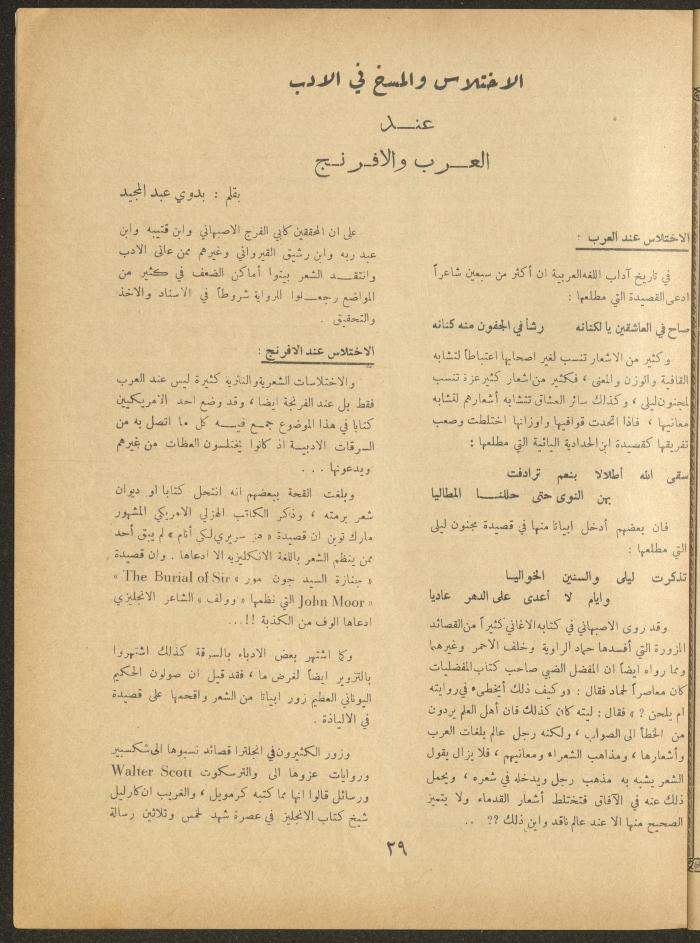 الاختلاس والمسخ في الادب
عنـــد
العـــرب والافرنـــج
بقلم : بدوي عبد المجيد
الاختلاس عند العرب :
في تاريخ آداب اللغه العربية ان أكثر من سبعين شاعراً
ادعى القصيدة التي مطلعها :
صاح في العاشقين يا لكنانه رشأ في الجفون منه كنانه
وكثير من الاشعار تنسب لغير اصحابها اعتباطاً لتشابه
القافية والوزن والمعنى ، فكثير من اشعار كثير عزة تنسب
لمجنون ليلى ، وكذلك سائر العشاق تتشابه أشعارهم لتشابه
معانيها ، فاذا اتحدت قوافيها واوزانها اختلطت وصعب
تفريقها كقصيدة ابن الحدادية اليائية التي مطلعها :
سقى الله أطلالا بنعم ترادفت
بهن النوى حتى حللنـــا المطاليا
فان بعضهم أدخل ابياتا منها في قصيدة مجنون ليلى
التي مطلعها :
تذكرت ليلى والسنين الخواليـا
وايام لا أعدى على الدهر عاديا
وقد روى الاصبهاني في كتابه الاغاني كثيراً من القصائد
المزورة التي أفسدها حماد الراوية وخلف الاحمر وغيرهما
ومما رواه ايضاً ان المفضل الضبي صاحب كتاب المفضليات
كان معاصراً لحماد فقال : « وكيف ذلك أيخطىء في روايته
ام يلحن ? » فقال : ليته كان كذلك فان أهل العلم يردون
من الخطأ الى الصواب ، ولكنه رجل عالم بلغات العرب
وأشعارها ، ومذاهب الشعراء ومعانيهم ، فلا يزال يقول
الشعر يشبه به مذهب رجل ويدخله في شعره ، ويحمل
ذلك عنه في الآفاق فتختلط أشعار القدماء ولا يتميز
الصحيح منها الا عند عالم ناقد واين ذلك ?? ..
على ان المحققين كابي الفرج الاصبهاني وابن قتيبه وابن
عبد ربه وابن رشيق القيرواني وغيرهم ممن عانى الادب
وانتقـــد الشعر بينوا أماكن الضعف في كثير من
المواضع وجعـــلوا للرواية شروطاً في الاسناد والاخذ
والتحقيق .
الاختلاس عند الافرنج :
والاختلاسات الشعرية والنثرية كثيرة ليس عند العرب
فقط بل عند الفرنجة ايضا ، وقد وضع احد الامريكيين
كتابا في هذا الموضوع جمـــع فيـــه كل ما اتصل به من
السرقات الادبيـــة اذ كانوا يختلسون العظات من غيرهم
ويدعونها . . .
وبلغت القحة ببعضهم انه انتحل كتابا او ديوان
شعر برمته ، وذكر الكاتب الهزلي الامريكي المشهور
مارك توين ان قصيدة « هز سريري لكي أنام » لم يبق أحد
ممن ينظم الشعر باللغة الانكليزيه الا ادعاها . وان قصيدة
« جنازة السيد جون مور » The Burial of Sir »
« John Moor التي نظمها « وولف » الشاعر الانجليزي
ادعاها الوف من الكذبة !!...
وكما اشتهر بعض الادباء بالسرقة كذلك اشتهروا
بالتزوير ايضاً لغرض ما ، فقد قيل ان صولون الحكيم
اليوناني العظيم زور ابياتا من الشعر واقحمها على قصيدة
في الالياذة .
وزور الكثيرون في انجلترا قصائد نسبوها الى شكسبير
وروايات عزوها الى والترسكوت Walter Scott
ورسائل قالوا انها مما كتبه كرمويل ، والغريب ان كارليل
شيخ كتاب الانجليز في عصرة شهد لخمس وثلاثين رسالة
٢٩